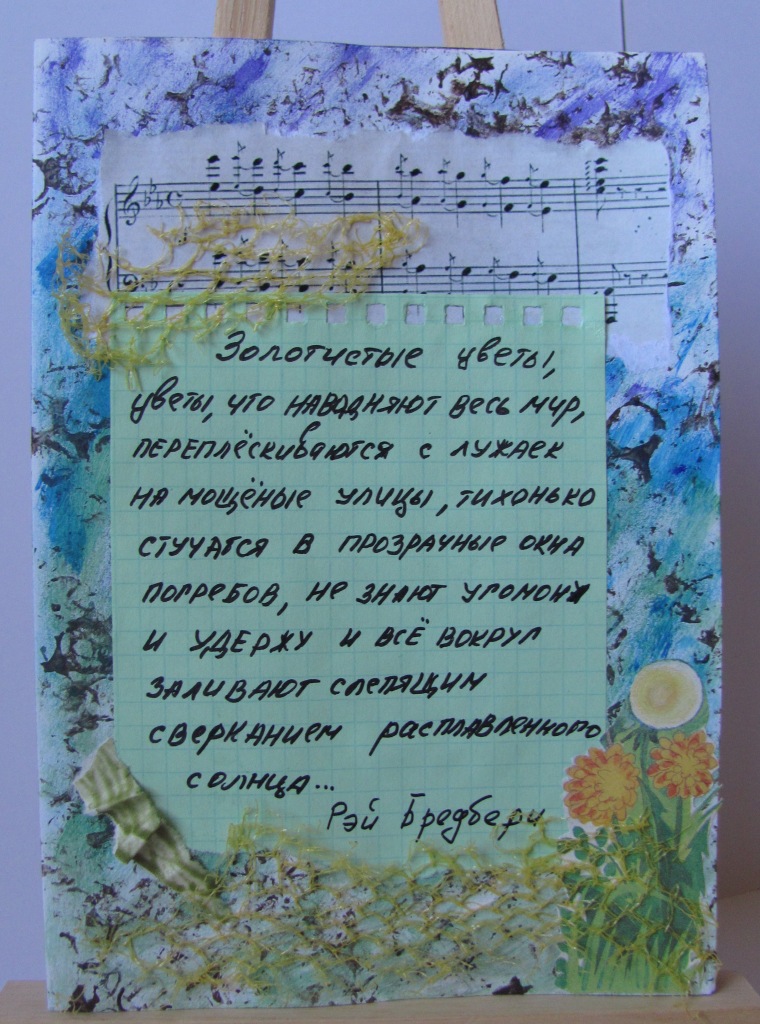 Золотистые цветы,
цветы, что наводняют весь мир,
переплёскиваются с лужаек
на мощёные улицы, тихонько
стучатся в прозрачные окна
погребов, не знают угомону
и удержу и всё вокруг
заливают слепящим
сверканием расплавленного
солнца...
Рэй Бредбери